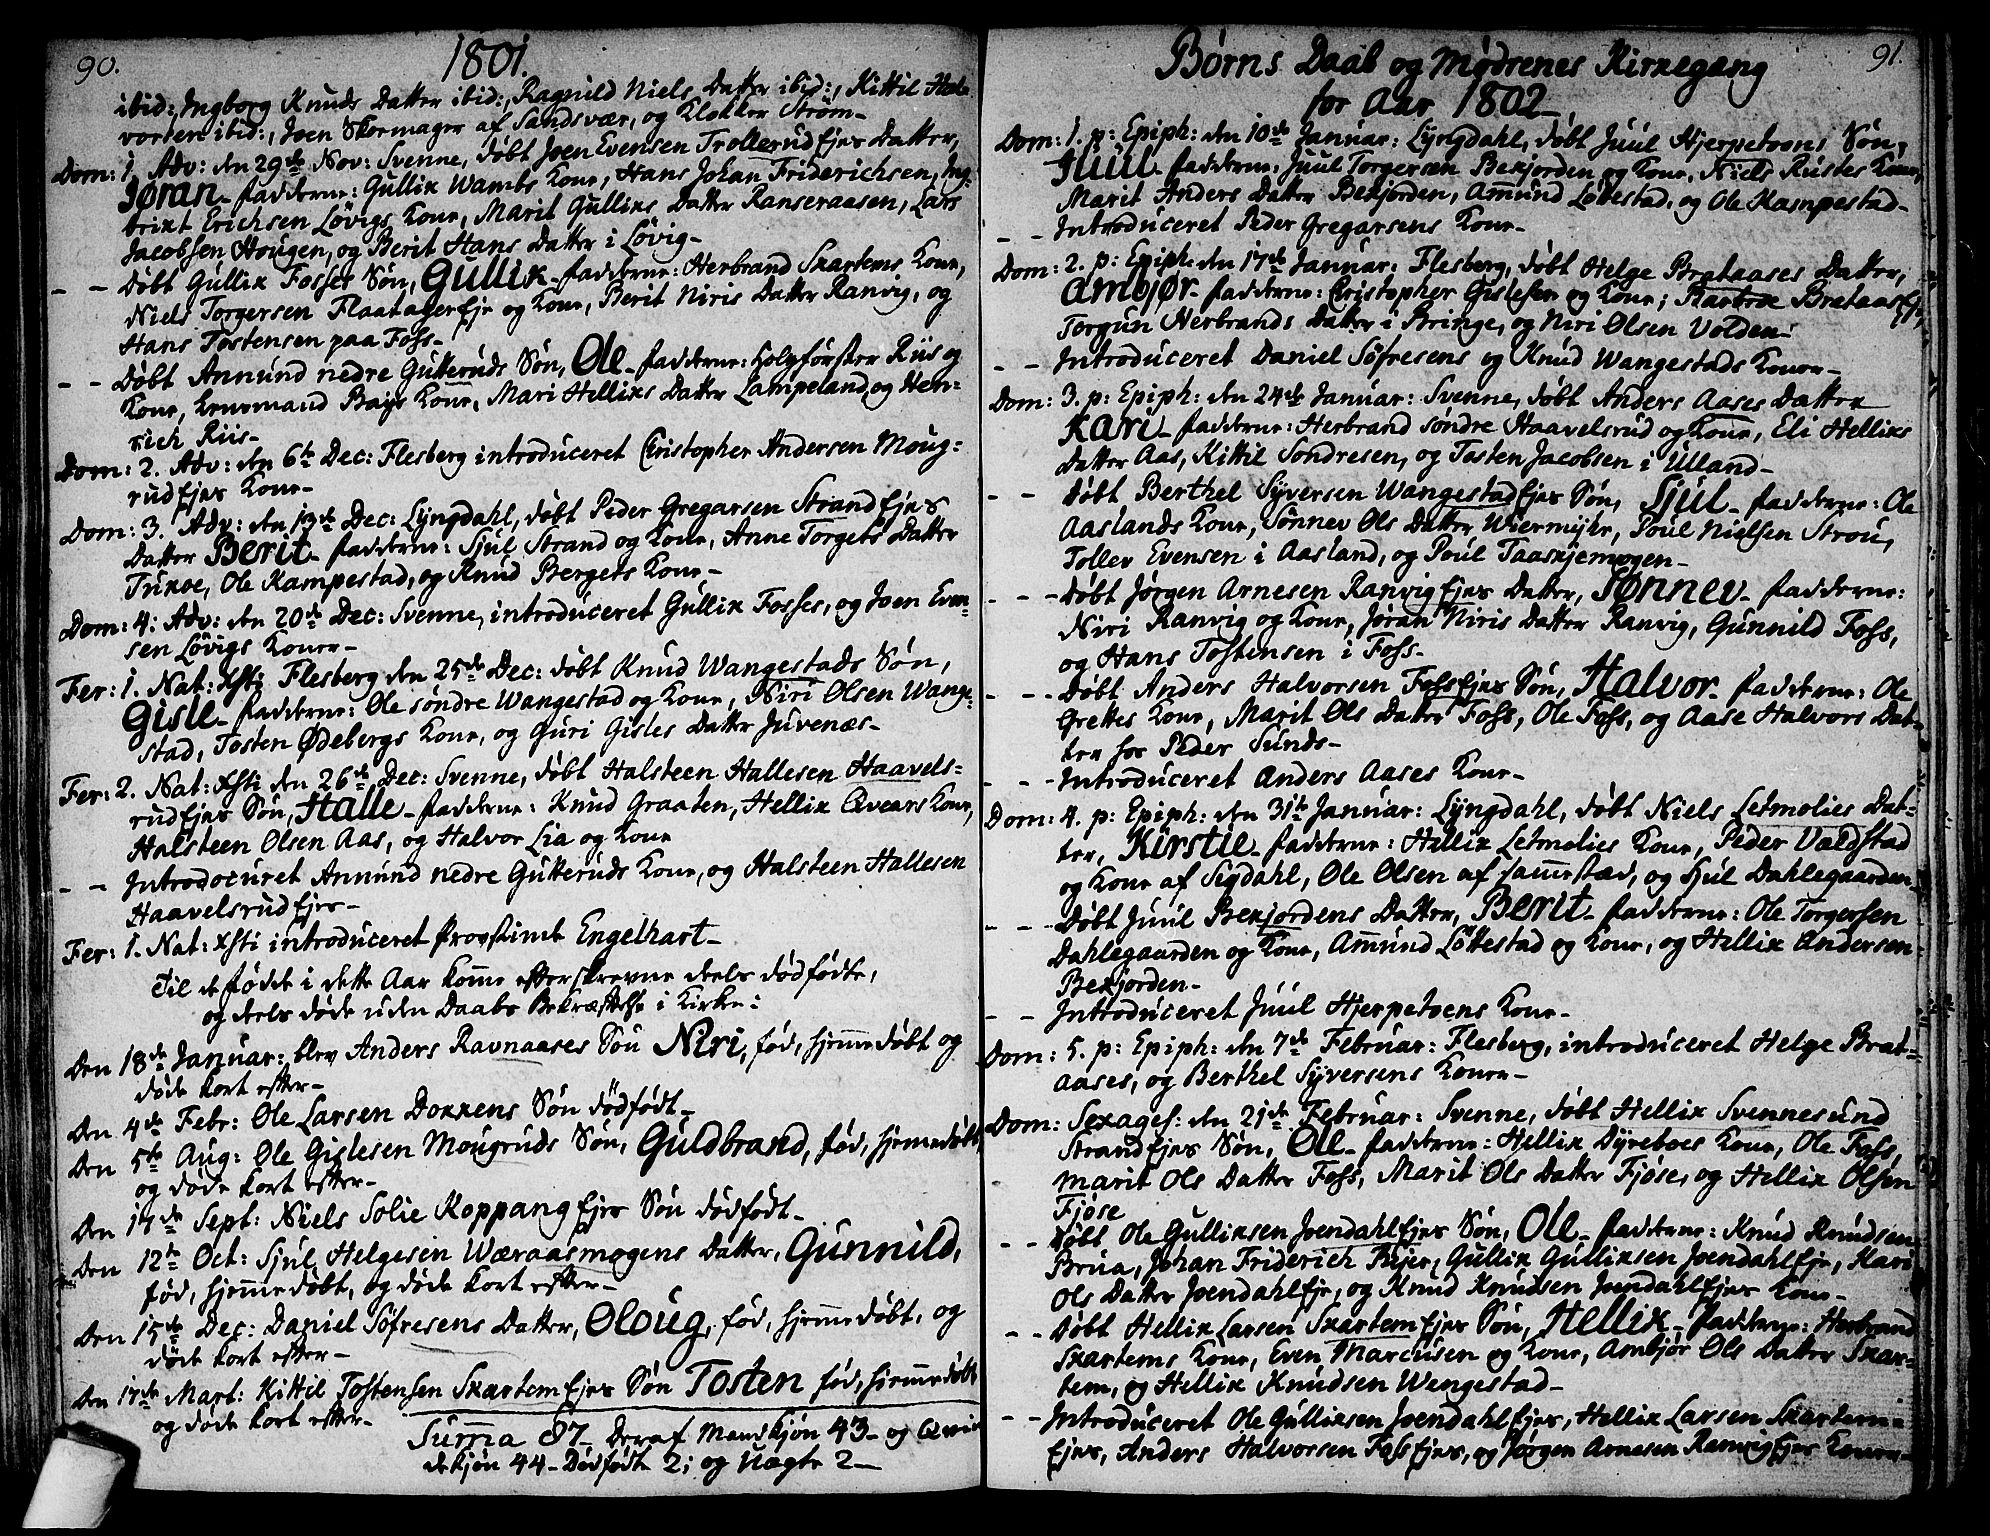 90.
1801.
ibid:, Ingborg Knuds Datter ibid:, Ragnild Niels Datter ibid:, Kittil Hal-
vorsen ibid:, Joen Skormager af Sandsvær, og Klokker Strøm-
Dom: 1. Adv: den 29de Nov: Svenne, døbt Joen Evensen Trollerud Ejes Datter,
Jøran - fadderne: Gullix Wambs Kone, Hans Johan Friderichsen, Ing-
brixt Erichsen Løvigs Kone, Marit Gullixs Datter Ranseraasen, Lars
Jacobsen Hougen, og Berit Hans Datter i Løvig-
- - Døbt Gullix Fosses Søn, Gullix - fadderne: Herbrand Skartems Kone,
Niels Torgersen FlaatagerEje og Kone, Berit Niris Datter Ranvig, og
Hans Tostensen paa Foss-
- - Døbt Annund nedre Gutteruds Søn, Ole - fadderne: Holzførster Riis og
Kone, Lensmand Bays Kone, Mari Hellixs Datter Lampeland, og Hen-
rich Riis-
Dom: 2. Adv: den 6te Dec: Flesberg introduceret Christopher Andersen Moug-
rud Ejes Kone-
Dom: 3. Adv: den 13de Dec: Lyngdahl, døbt Peder Gregarsen Strand Ejes
Datter Berit - fadderne: Sjul Strand og Kone, Anne Torgers Datter
Tuxoe, Ole Kampestad, og Knud Bergets Kone-
Dom: 4: Adv: den 20de Dec: Svenne, introduceret Gullix Fosses, og Joen Even-
sen Løvigs Koner-
Fer: 1. Nat: Xsti Flesberg den 25de Dec: døbt Knud Wangestads Søn,
Gisle - fadderne: Ole søndre Wangestad og Kone, Niri Olsen Wange-
stad, Tosten Ødebergs Kone, og Guri Gisles Datter Juvenæs-
Fer: 2. Nat: Xsti den 26de Dec: Svenne, døbt Halsteen Hallesen Haavels-
rud Ejes Søn, Halle - fadderne: Knud Graaten, Hellix Qvears Kone,
Halsteen Olsen Aas, og Halvor Lia og Kone
- - Introducuret Annund nedre Gutteruds Kone, og Halsteen Hallesen
Haavelsrud Ejes-
Fer: 1. Nat: Xsti introduceret Provstinde Engelhart-
Til de fødde i dette Aar komme efterskrevne deels dødfødte,
og deels døde uden Daabs Bekræftelse i Kirke:
Den 18de Januar: blev Anders Ravnaases Søn Niri, fød, hjemmedøbt og
døde kort efter-
Den 4de Febr: Ole Larsen Doxxens Søn dødfødt-
Den 5te Aug: Ole Gislesen Mougruds Søn, Guldbrand, fød, hjemmedøbt,
og døde kort efter-
Den 17de Sept: Niels Solie Koppang Ejes Søn dødfødt-
Den 12te Oct: Sjul Helgesen Wæraasmogens Datter, Gunnild,
fød, hjemmedøbt, og døde kort efter-
Den 15de Dec: Daniel Søfresens Datter, Oloug, fød, hjemmedøbt, og
døde kort efter-
Den 17de Mart: Kittil Tostensen Skartem Ejes Søn Tosten fød, hjemmedøbt
og døde kort efter-
Summa 87- Deraf Mandkjøn 43- og Qvin
dekjøn 44- Dødfødte 2; og Uægte 2-
91.
Børns Daab og Mødrenes Kirkegang
for Aar 1802-
Dom: 1. p: Epiph: den 10de Januar: Lyngdahl, døbt Juul Hjerpetoens Søn,
Juul - fadderne: Juul Torgersen Bexjorden og Kone, Niels Rustes Kone,
Marit Anders Datter Bexjorden, Amund Løbestad, og Ole Kampestad-
- - Introduceret Peder Gregarsens Kone-
Dom: 2. p: Epiph: den 17de Januar: Flesberg, døbt Helge Brataases Datter,
Ambjør - fadderne: Christopher Gislesen og Kone; BrataasEje,
Torgun Herbrands Datter i Bringe, og Niri Olsen Volden-
- - Introduceret Daniel Søfresens og Knud Wangestads Koner-
Dom: 3. p: Epiph: den 24de Januar: Svenne, døbt Anders Aases Datter
Kari - fadderne: Herbrand søndre Haavelsrud og Kone, Eli Hellixs
Datter Aas, Kittil Sondresen, og Tosten Jacobsen i Ulland-
- - Døbt Berthel Syversen Wangestad Ejes Søn, Sjul - fadderne: Ole
Aaslands Kone, Sønnev Ols Datter Wiermyhr, Poul Nielsen Strou,
Tollev Evensen i Aasland, og Poul Taaskjemogen-
- - - Døbt Jørgen Arnesen Ranvig Ejes Datter, Sønnev - fadderne:
Niri Ranvig og Kone, Jøran Niris Datter Ranvig, Gunnild Foss,
og Hans Tostensen i Foss-
- - - Døbt Anders Halvorsen Foss Ejes Søn, Halvor - fadderne: Ole
Grettes Kone, Marit Ols Datter Foss, Ole Foss, og Aase Halvors Dat-
ter hos Peder Sunds-
- - - Introduceret Anders Aases Kone-
Dom: 4. p: Epiph: den 31te Januar: Lyngdahl, døbt Niels Letmolies Dat-
ter, Kirstie - fadderne: Hellix Letmolies Kone, Peder Valdstad
og Kone af Sigdahl, Ole Olsen af sammestæd, og Sjul Dahlegaarden-
- - - Døbt Juul Bexjordens Datter, Berit - fadderne: Ole Torgersen
Dahlegaarden og Kone, Amund Løttestad og Kone, og Hellix Andersen
Bexjorden-
- - Introduceret Juul Hjerpetoens Kone-
Dom: 5. p: Epiph: den 7de Februar: Flesberg, introduceret Helge Brat-
aases, og Berthel Syversens Koner-
Dom: Sexages: den 21de Februar: Svenne, døbt Hellix Svennesund
Strand Ejes Søn, Ole - fadderne: Hellix Dyreboes Kone, Ole Foss,
Marit Ols Datter Foss, Marit Ols Datter Fjøse, og Hellix Olsen
Fjøse
- - Døbt Ole Gullixsen Joendahl Ejes Søn, Ole - fadderne: Knud Knudsen
Brua, Johan Friderich Bejer, Gullix Gullixsen Joendahl Eje, Kari
Ols Datter Joendahl Eje, og Knud Knudsen Joendahl Ejes Kone-
- - Døbt Hellix Larsen Skartem Ejes Søn, Hellix - fadderne: Herbrand
Skartems Kone, Even Marcusen og Kone, Ambjør Ols Datter Skar-
tem, og Hellix Knudsen Wengestad-
- - Introduceret Ole Gullixsen Joendahl Ejes, Hellix Larsen Skartem-
Ejes, Anders Halvorsen Foss Ejes, og Jørgen Arnesen Ranvig Ejes Koner-